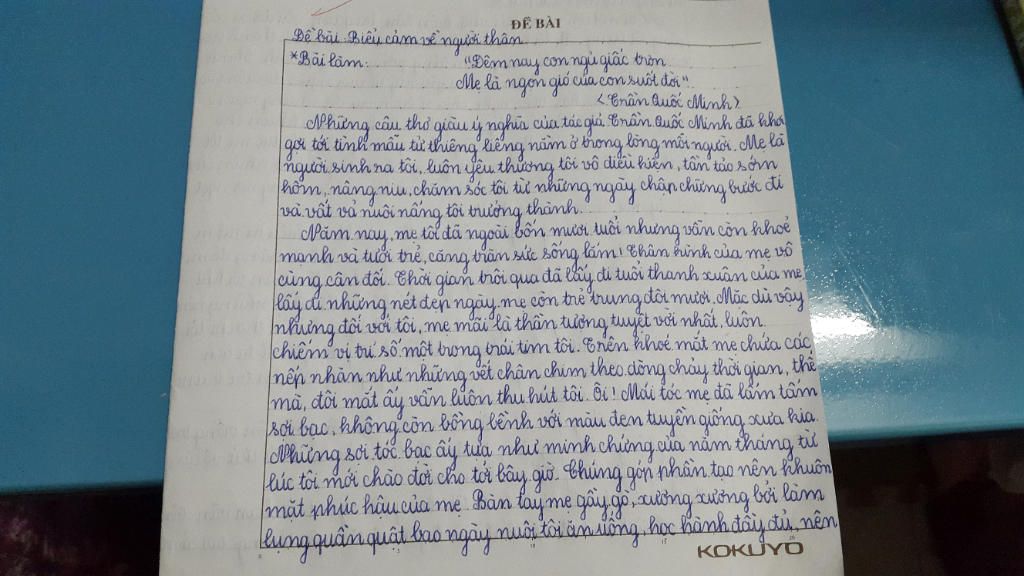 ĐỀ BÀI
Đề bài: Biểu cảm về người thân
*Bài làm: "Đêm nay con ngủ giấc tròn
Mẹ là ngọn gió của con suốt đời".
<Trần Quốc Minh>
Những câu thơ giàu ý nghĩa của tác giả Trần Quốc Minh đã khơi
gợi tới tình mẫu tử thiêng liêng nằm ở trong lòng mỗi người. Mẹ là
người sinh ra tôi, luôn yêu thương tôi vô điều kiện, tần tảo sớm
hôm, nâng niu, chăm sóc tôi từ những ngày chập chững bước đi
và vất vả nuôi nấng tôi trưởng thành.
Năm nay, mẹ tôi đã ngoài bốn mươi tuổi nhưng vẫn còn khoẻ
mạnh và tươi trẻ, căng tràn sức sống lắm! Thân hình của mẹ vô
cùng cân đối. Thời gian trôi qua đã lấy đi tuổi thanh xuân của mẹ,
lấy đi những nét đẹp ngày mẹ còn trẻ trung đôi mươi. Mặc dù vậy
nhưng đối với tôi, mẹ mãi là thần tượng tuyệt vời nhất, luôn
chiếm vị trí số một trong trái tim tôi. Trên khoé mắt mẹ chứa các
nếp nhăn như những vết chân chim theo dòng chảy thời gian, thế
mà, đôi mắt ấy vẫn luôn thu hút tôi. Ôi! Mái tóc mẹ đã lấm tấm
sợi bạc, không còn bồng bềnh với màu đen tuyền giống xưa kia.
Những sợi tóc bạc ấy tựa như minh chứng của năm tháng từ
lúc tôi mới chào đời cho tới bây giờ. Chúng góp phần tạo nên khuôn
mặt phúc hậu của mẹ. Bàn tay mẹ gầy gò, xương xương bởi làm
lụng quần quật bao ngày nuôi tôi ăn uống, học hành đầy đủ, nên
KOKUYO